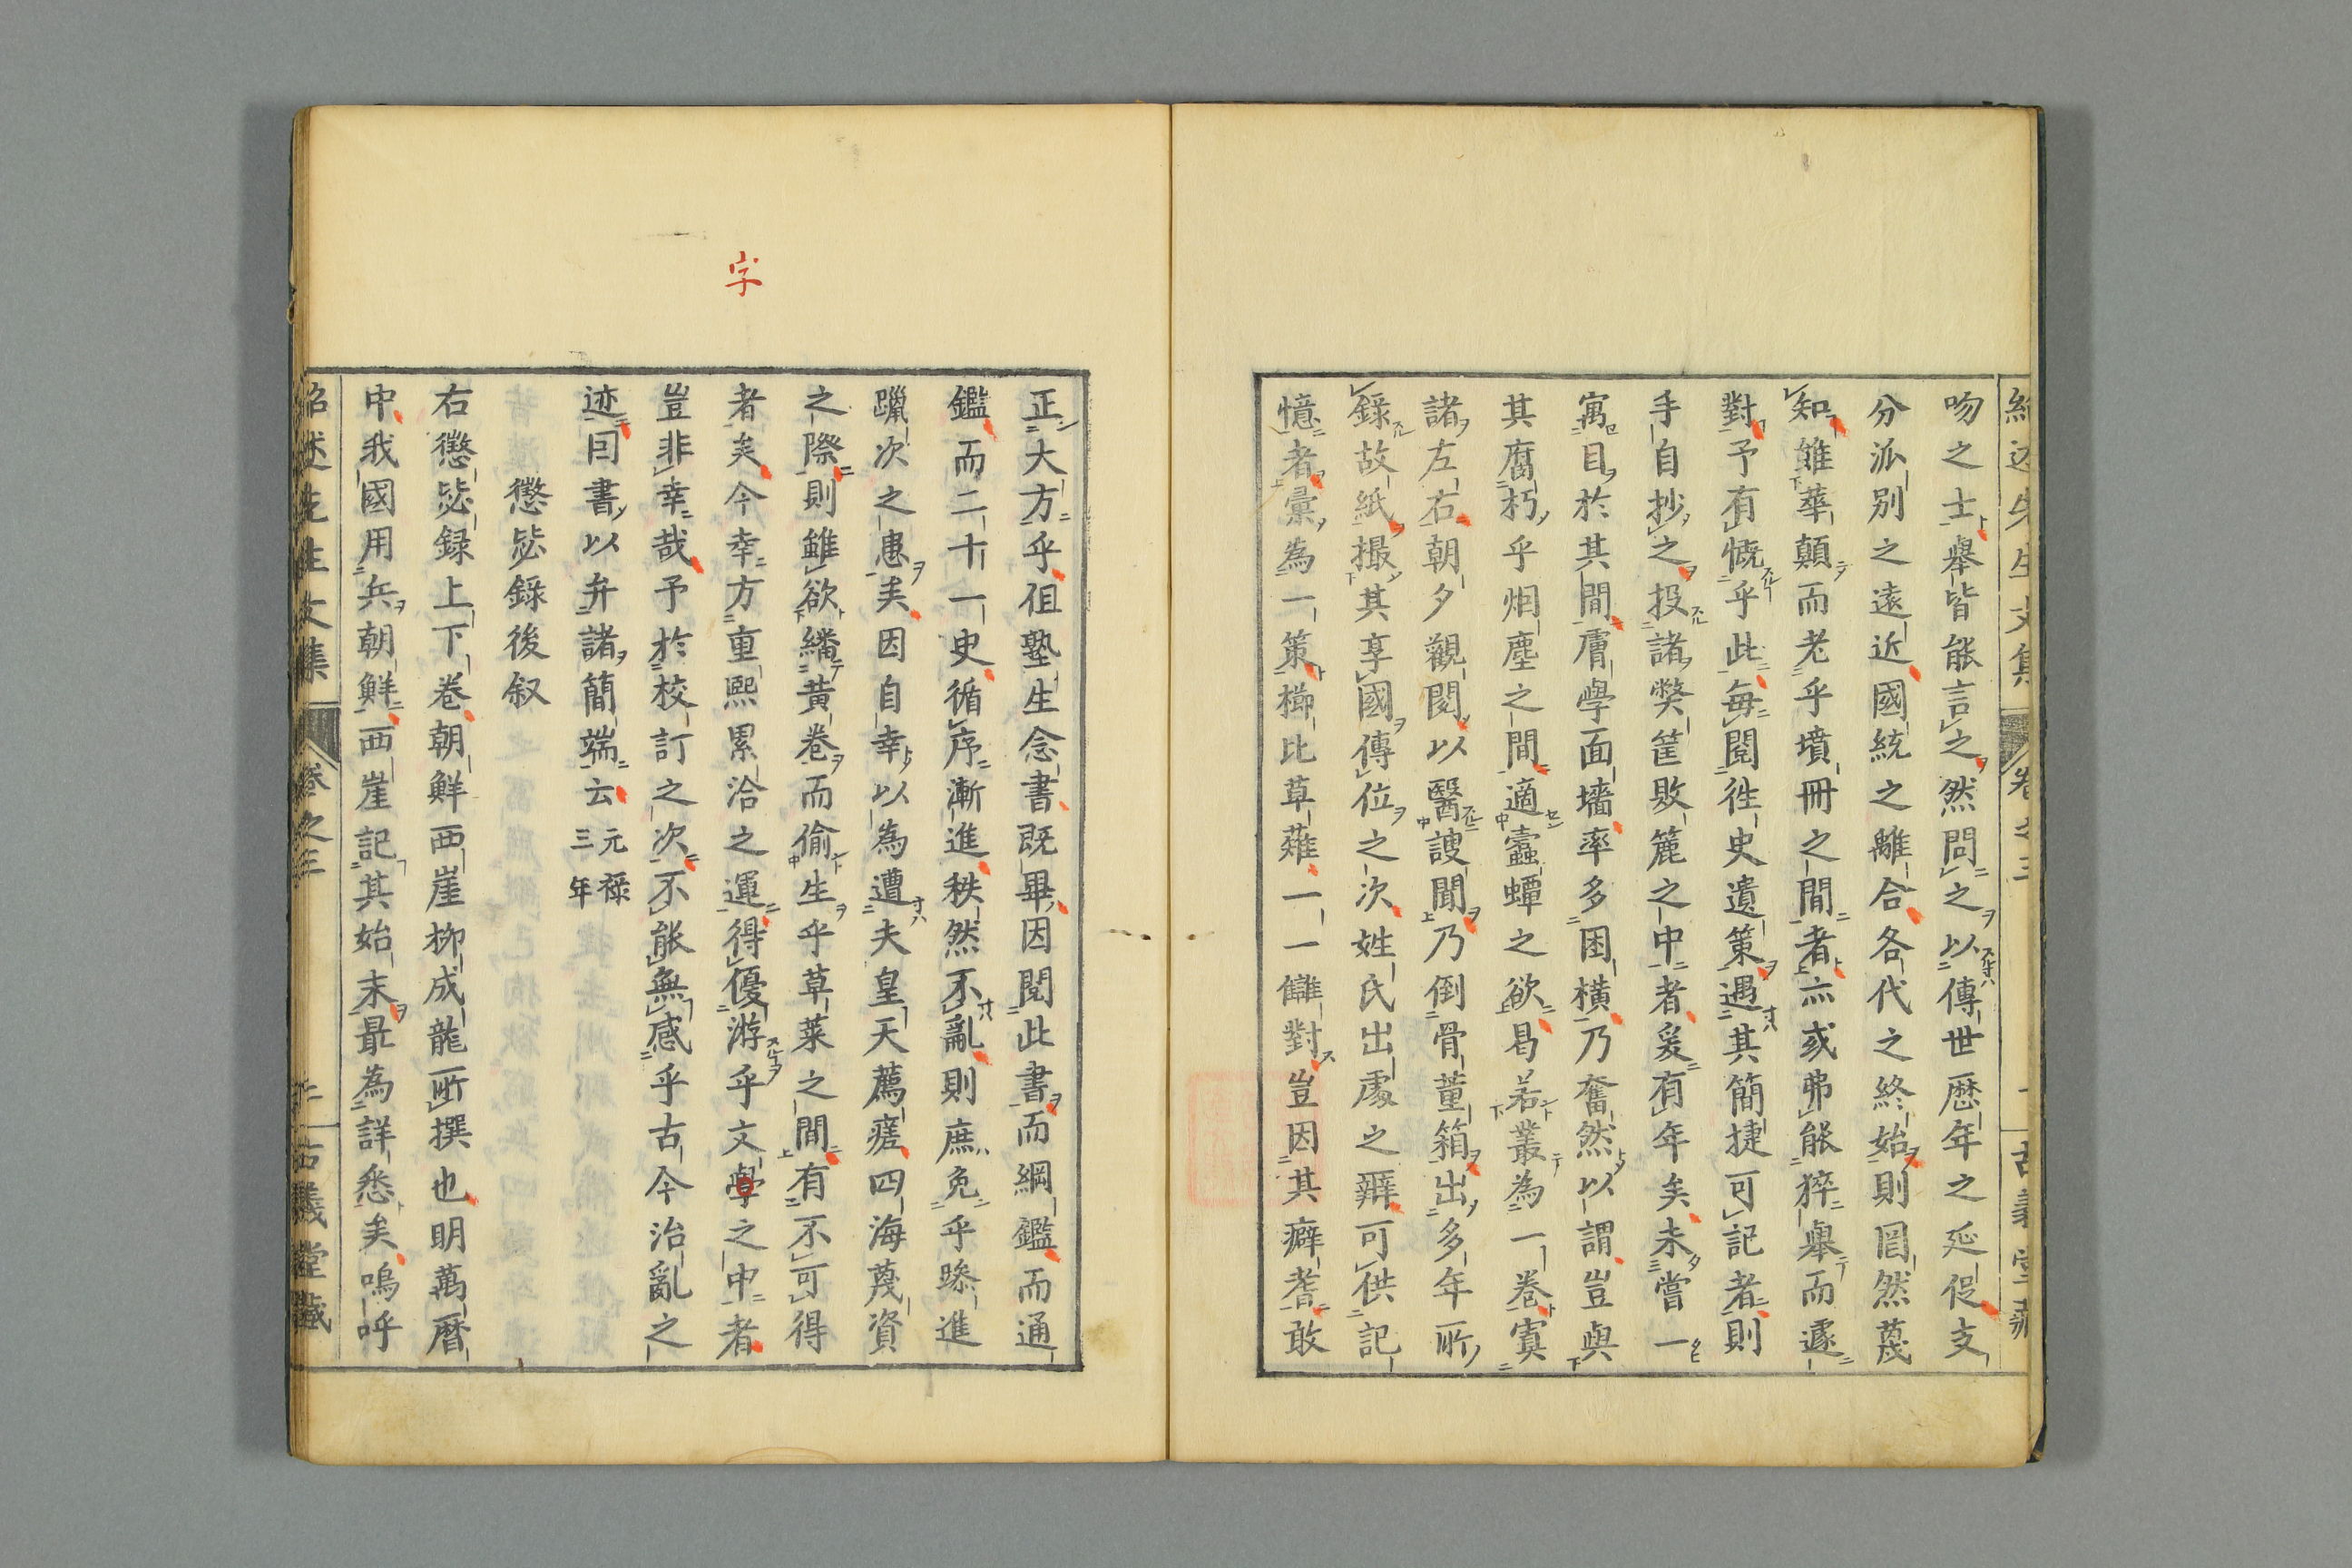 吻之士舉皆能言之然問之以傳世歴年之延促支
分派別之遠近國統之離合各代之終始則罔然蔑
知雖華顛而老乎墳冊之間者亦或弗能猝舉而遽
對予有慨乎此毎閲徃史遺策遇其簡捷可記者則
手自抄之投諸獘筐敗簏之中者爰有年矣未嘗一
寓目於其間膚學面墻率多困横乃奮然以謂豈與
其腐朽乎烟塵之間適蠹蟫之欲曷若叢為一巻寘
諸左右朝夕觀閲以醫謏聞乃倒骨董箱出多年所
錄故紙撮其享國傳位之次姓氏出處之辨可供記
憶者彙為一策櫛比草薙一一讎對豈因其癖耆敢
正大方乎伹塾生念書既畢因閲此書而綱鑑而通
鑑而二十一史循序漸進秩然不亂則庶免乎躐進
躐次之患矣因自幸以為遭夫皇天薦瘥四海蔑資
之際則雖欲繙黄巻而偷生乎草莱之間有不可得
者矣今幸方重熙累洽之運得優游乎文學之中者
豈非幸哉予於校訂之次不能無感乎古今治亂之
迹因書以弁諸簡端云 元祿三年
懲毖錄後叙
右懲毖録上下巻朝鮮西崖柳成龍所撰也明萬曆
中我國用兵朝鮮西崖記其始末最為詳悉矣嗚呼
字
紹述先生文集 巻之三 古義堂藏